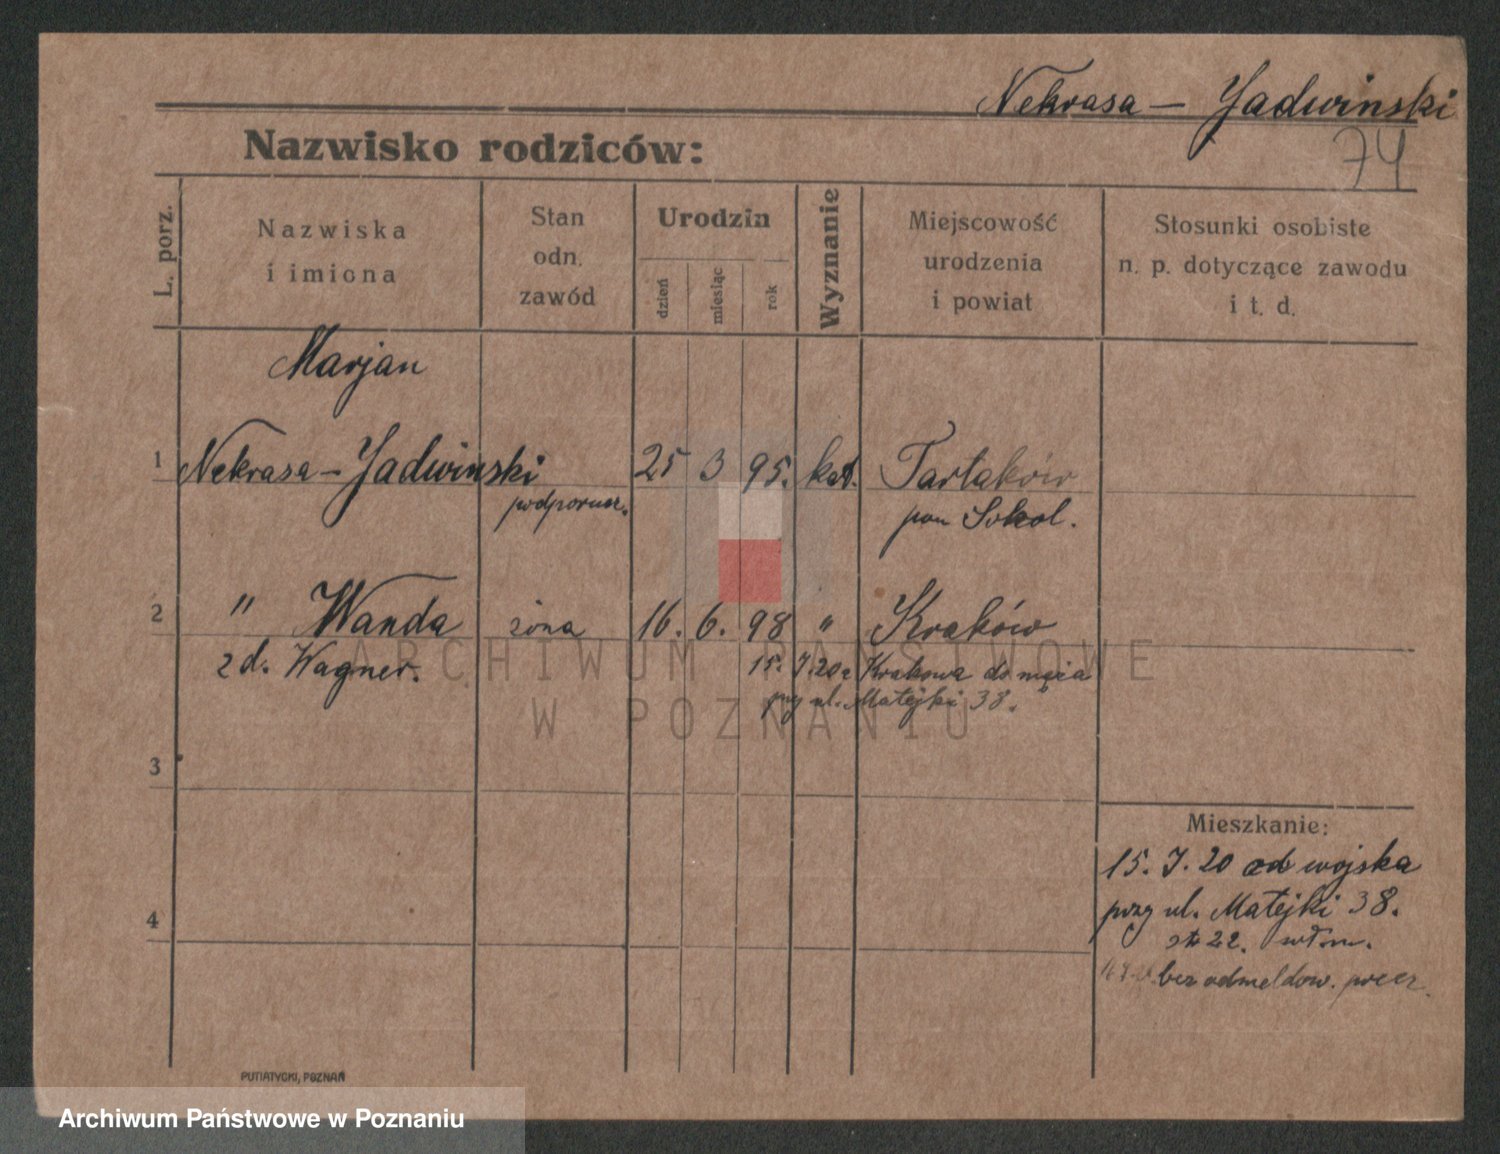 Nekrasa - Jadwinski
74
Nazwisko rodziców:
L. porz.
Nazwiska
i imiona
Stan
odn.
zawód
Urodzin
dzień
miesiąc
rok
Wyznanie
Miejscowość
urodzenia
i powiat
Stosunki osobiste
n. p. dotyczące zawodu
i t. d.
Marjan
1 Nekrasa - Jadwinski 25 3 95. kat. Tartaków
podporucz. pow Sokal.
2 " Wanda żona 16. 6. 98 " Kraków
z d. Wagner. 15. I. 20 z Krakowa do męża
przy ul. Matejki 38.
3
Mieszkanie:
15. I. 20 od wojska
przy ul. Matejki 38.
4
22.
bez odmeldow.
PUTIATYCKI, POZNAŃ
ARCHIWUM PAŃSTWOWE
W POZNANIU
Archiwum Państwowe w Poznaniu